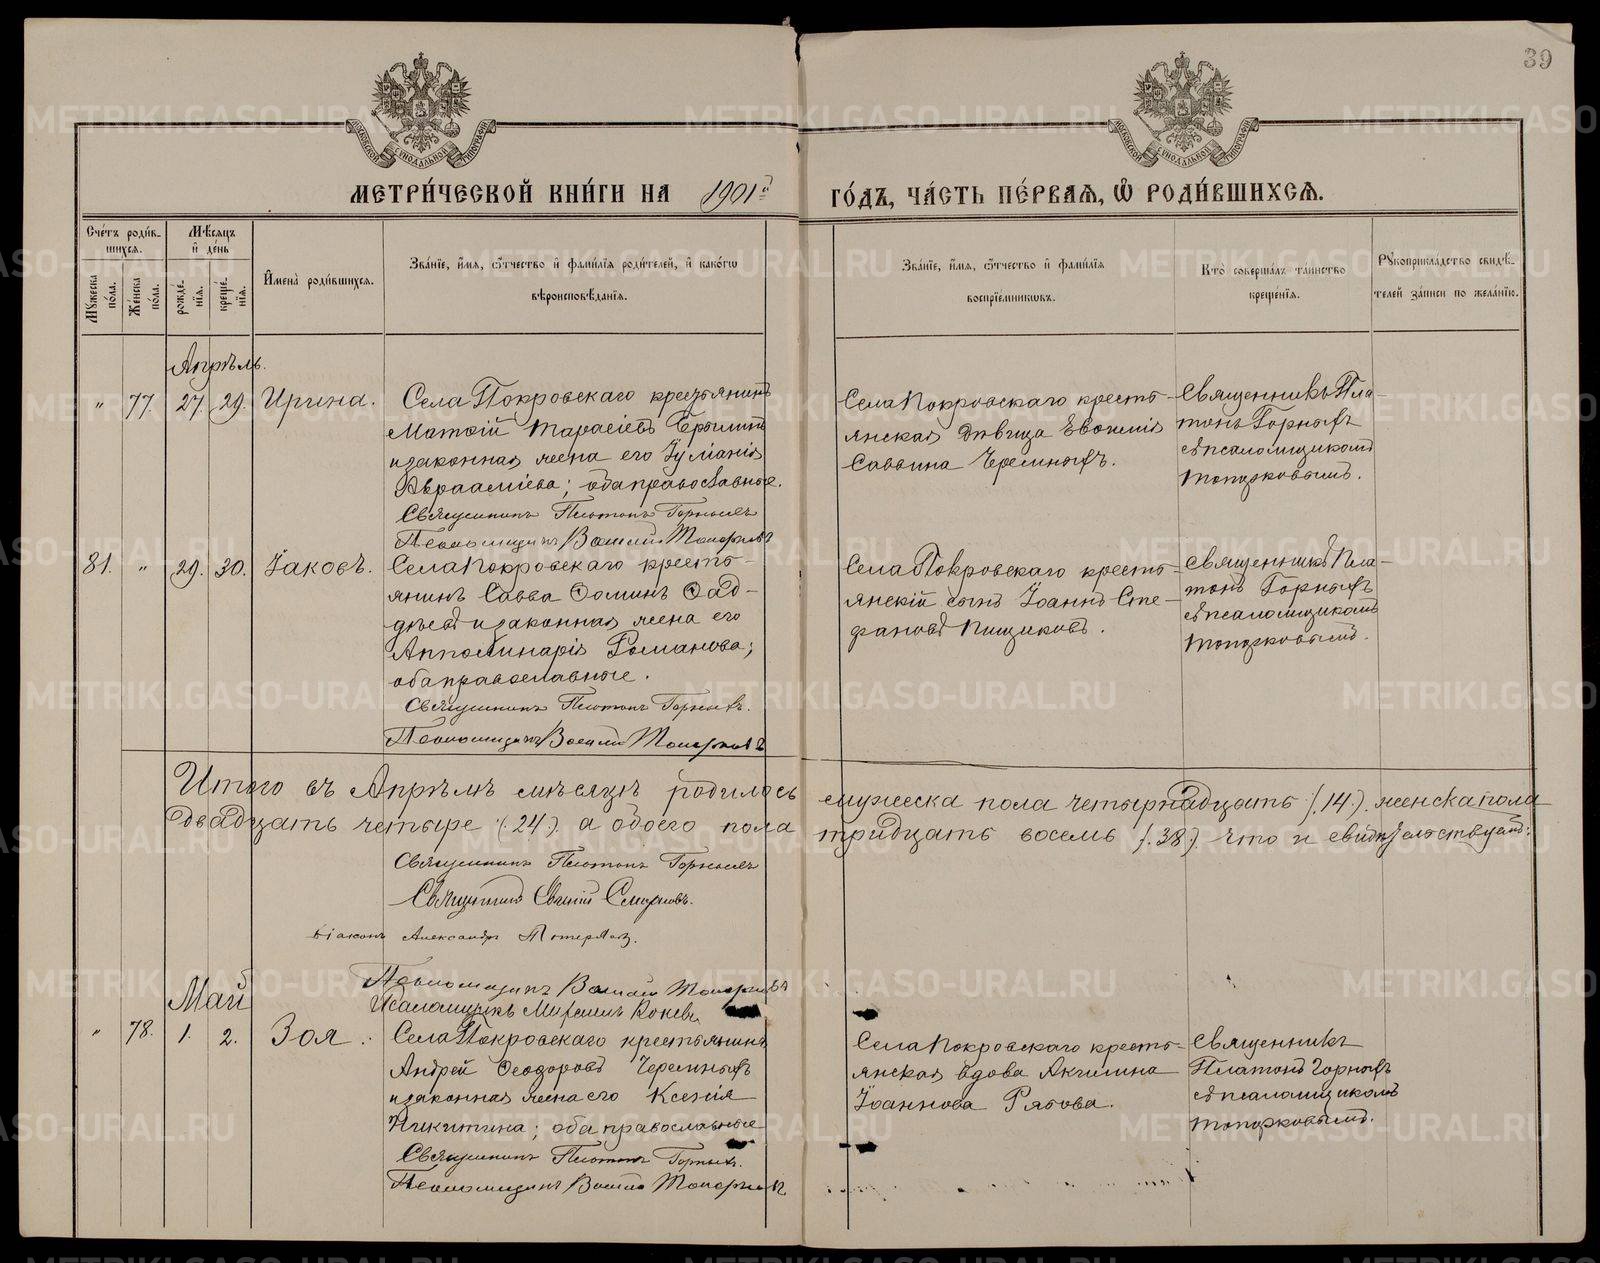 39
МЕТРИ́ЧЕСКОЙ КНИ́ГИ НА 1901й ГО́ДЪ, ЧА́СТЬ ПЕ́РВАЯ, Ѡ РОДИ́ВШИХСЯ.
Сче́тъ роди́вшихся.
Мѣ́сяцъ и де́нь
Му́жеска по́ла.
Же́нска по́ла.
рожде́нія.
креще́нія.
Имена̀ роди́вшихся.
Зва́ніе, и́мя, ѻ́тчество и фами́лія роди́телей, и како́гѡ
вѣроисповѣ́данія.
Зва́ніе, и́мя, ѻ́тчество и фами́лія
воспріе́мниковъ.
Кто̀ соверша́лъ та́инство
креще́нія.
Рукоприкла́дство свидѣ́-
телей за́писи по жела́нію.
Апрѣль.
" 77. 27. 29. Ирина.
Села Покровскаго крестьянинъ
Матѳій Тарасіевъ
и законная жена его Іуліанія
Авраамiева; оба православные.
Священникъ Платонъ Горныхъ
Псаломщикъ Василій Топорковъ
Села Покровскаго кресть-
янская дѣвица Евѳимія
Саввина Черемныхъ.
Священникъ Пла-
тонъ Горныхъ
съ псаломщикомъ
Топорковымъ.
81. " 29. 30. Іаковъ.
Села Покровскаго кресть-
янинъ Савва Ѳоминъ Ѳад-
дѣевъ и законная жена его
Апполинарія Романова;
оба православные.
Священникъ Платонъ Горныхъ.
Псаломщикъ Василій Топорковъ
Села Покровскаго кресть-
янскій сынъ Іоаннъ Сте-
фановъ Пищиковъ.
Священникъ Пла-
тонъ Горныхъ
съ псаломщикомъ
Топорковымъ.
Итого въ Апрѣлѣ мѣсяцѣ родилось мужеска пола четырнадцать /.14./. женска пола
двадцать четыре /.24./. а обоего пола тридцать восемь /.38./. что и свидѣтельствуемъ:
Священникъ Платонъ Горныхъ
Священникъ Евгеній Смирновъ.
Діаконъ Александръ
Псаломщикъ Василій Топорковъ
Псаломщикъ
Май
" 78. 1. 2. Зоя.
Села Покровскаго крестьянинъ
Андрей Ѳеодоровъ Черемныхъ
и законная жена его Ксенія
Никитина; оба православные
Священникъ Платонъ Горныхъ.
Псаломщикъ Василій Топорковъ
Села Покровскаго кресть-
янская вдова Акилина
Іоаннова Рябова.
Священникъ
Платонъ Горныхъ
съ псаломщикомъ
Топорковымъ.
METRIKI.GASO-URAL.RU